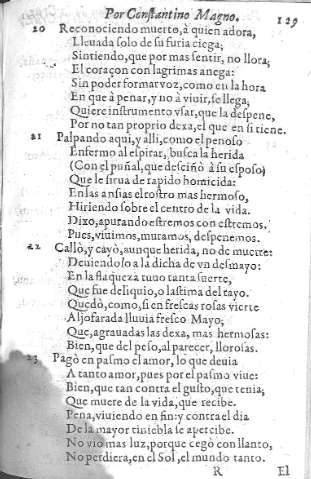 Por Constantino Magno. 129
20 Reconociendo muerto, à quien adora,
Lleuada solo de su furia ciega;
Sintiendo, que por mas sentir, no llora;
El coraçon con lagrimas anega:
Sin poder formar voz, como en la hora
En que à penar, y no à viuir, se llega,
Quiere instrumento vsar, que la despene,
Por no tan proprio dexa, el que en si tiene.
21 Palpando aqui, y alli, como el penoso
Enfermo al espirar, busca la herida
(Con el puñal, que desciñò à su esposo)
Que le sirua de rapido homicida:
En las ansias el rostro mas hermoso,
Hiriendo sobre el centro de la vida.
Dixo, apurando estremos con estremos.
Pues, viuimos, muramos, despenemos.
22 Callò, y cayò, aunque herida, no de muerte:
Deuiendolo a la dicha de vn desmayo:
En la flaqueza tuuo tanta suerte,
Que fue deliquio, o lastima del rayo.
Quedò, como, si en frescas rosas vierte
Aljofarada lluuia fresco Mayo;
Que, agrauadas las dexa, mas hermosas:
Bien, que del peso, al parecer, llorosas.
23 Pagò en pasmo el amor, lo que deuia
A tanto amor, pues por el pasmo viue:
Bien, que tan contra el gusto, que tenia;
Que muere de la vida, que recibe.
Pena, viuiendo en fin: y contra el dia
De la mayor tiniebla se apercibe.
No vio mas luz, porque cegò con llanto,
No perdiera, en el Sol, el mundo tanto.
R El